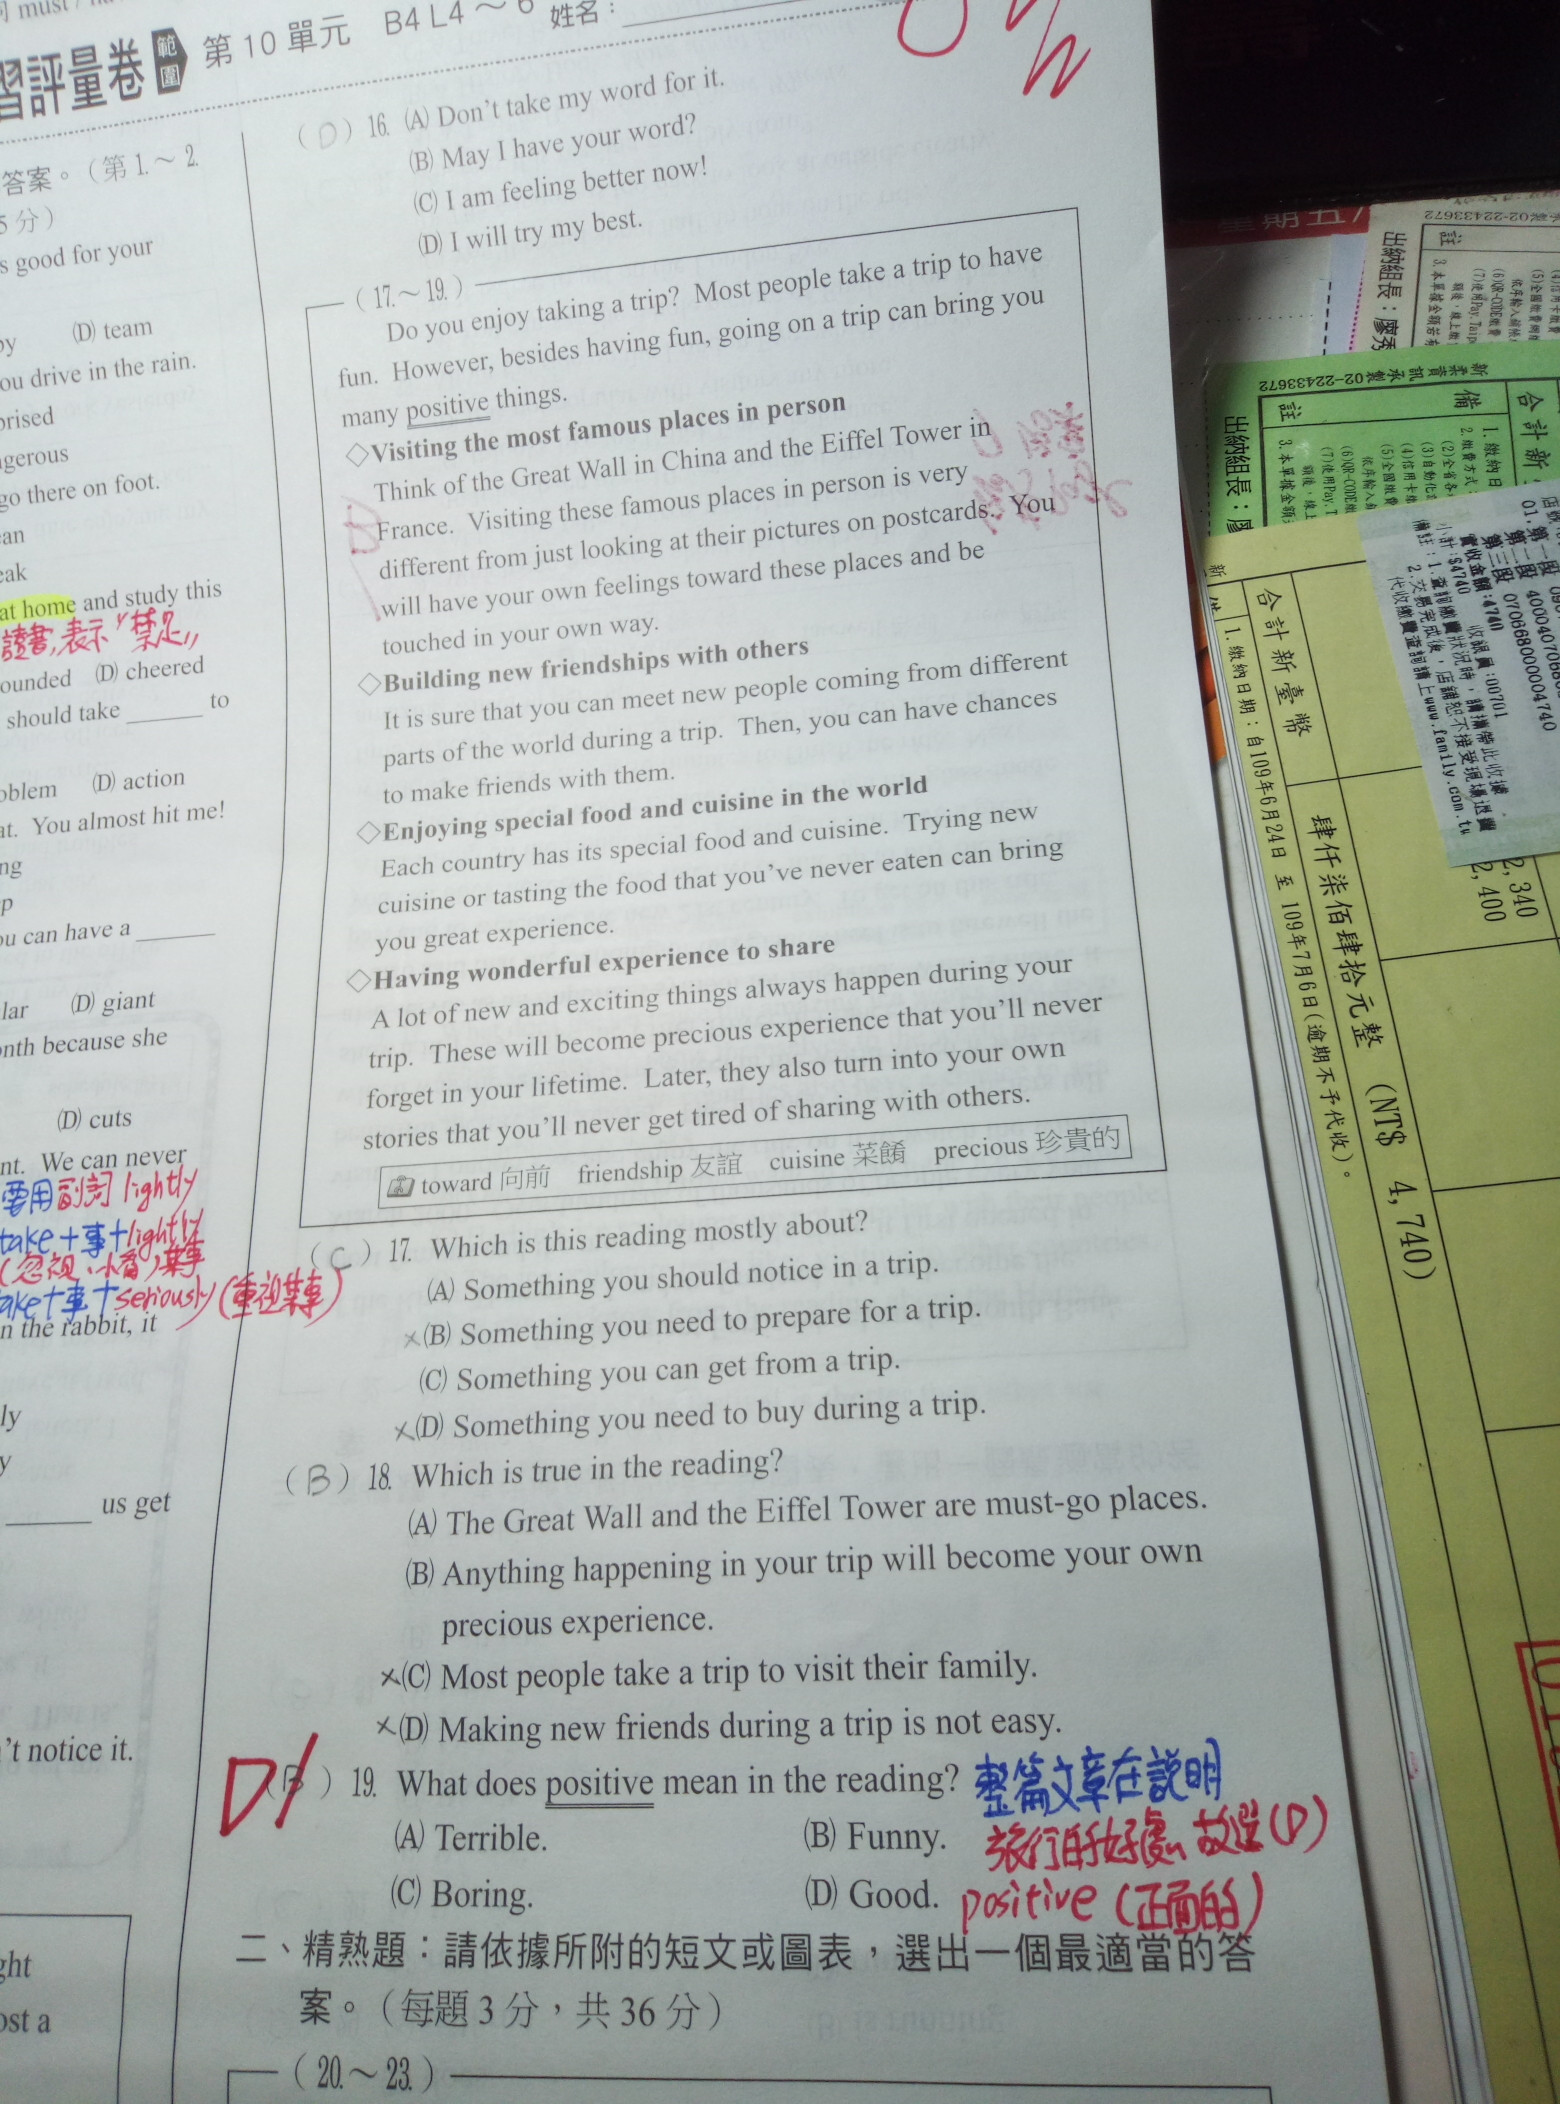 習評量卷 範圍 第10單元 B4 L4～6 姓名：
答案。（第1.～2.
5分）
s good for your
(D) team
ou drive in the rain.
prised
gerous
go there on foot.
ean
eak
at home and study this
讀書,表示"禁足"
ounded (D) cheered
should take ______ to
oblem (D) action
at. You almost hit me!
ng
p
ou can have a ______
lar (D) giant
onth because she
(D) cuts
nt. We can never
要用副詞 lightly
take+事+lightly
(忽視、小看)某事
take+事+seriously(重視某事)
n the rabbit, it
ly
y
______ us get
't notice it.
ght
ost a
( D ) 16. (A) Don't take my word for it.
(B) May I have your word?
(C) I am feeling better now!
(D) I will try my best.
（17.～19.）
Do you enjoy taking a trip? Most people take a trip to have
fun. However, besides having fun, going on a trip can bring you
many positive things.
◇Visiting the most famous places in person
Think of the Great Wall in China and the Eiffel Tower in
France. Visiting these famous places in person is very
different from just looking at their pictures on postcards. You
will have your own feelings toward these places and be
touched in your own way.
◇Building new friendships with others
It is sure that you can meet new people coming from different
parts of the world during a trip. Then, you can have chances
to make friends with them.
◇Enjoying special food and cuisine in the world
Each country has its special food and cuisine. Trying new
cuisine or tasting the food that you've never eaten can bring
you great experience.
◇Having wonderful experience to share
A lot of new and exciting things always happen during your
trip. These will become precious experience that you'll never
forget in your lifetime. Later, they also turn into your own
stories that you'll never get tired of sharing with others.
toward 向前 friendship 友誼 cuisine 菜餚 precious 珍貴的
( C ) 17. Which is this reading mostly about?
(A) Something you should notice in a trip.
×(B) Something you need to prepare for a trip.
(C) Something you can get from a trip.
×(D) Something you need to buy during a trip.
( B ) 18. Which is true in the reading?
(A) The Great Wall and the Eiffel Tower are must-go places.
(B) Anything happening in your trip will become your own
precious experience.
×(C) Most people take a trip to visit their family.
×(D) Making new friends during a trip is not easy.
D ( B ) 19. What does positive mean in the reading? 整篇文章在說明
(A) Terrible. (B) Funny. 旅行的好處、故選(D)
(C) Boring. (D) Good. positive (正面的)
二、精熟題：請依據所附的短文或圖表，選出一個最適當的答
案。（每題3分，共36分）
（20.～23.）
出納組長：廖秀
新柔資訊承製02-22433672
備註
合計新
出納組長：廖
合計新臺幣 肆仟柒佰肆拾元整 (NT$ 4,740)
1.繳納日期：自109年6月24日 至 109年7月6日(逾期不予代收)。
2,340
2,400
第二段
第三段 070668000004740
實收金額:4740 收銀員:00701
小計:$4740
備註：1.查詢繳費狀況時，請攜帶此收據
2.交易完成後，店舖恕不接受現場退費
代收繳費查詢請上www.family.com.tw